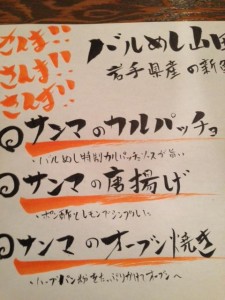 さんま!!
さんま!!
さんま!!
バルめし山田
岩手県産の新
◎サンマのカルパッチョ
・バルめし特製カルパッチョソースが旨い
◎サンマの唐揚げ
・ポン酢とレモンでシンプルに
◎サンマのオーブン焼き
・ハーブパン粉をたっぷりかけてオーブンへ